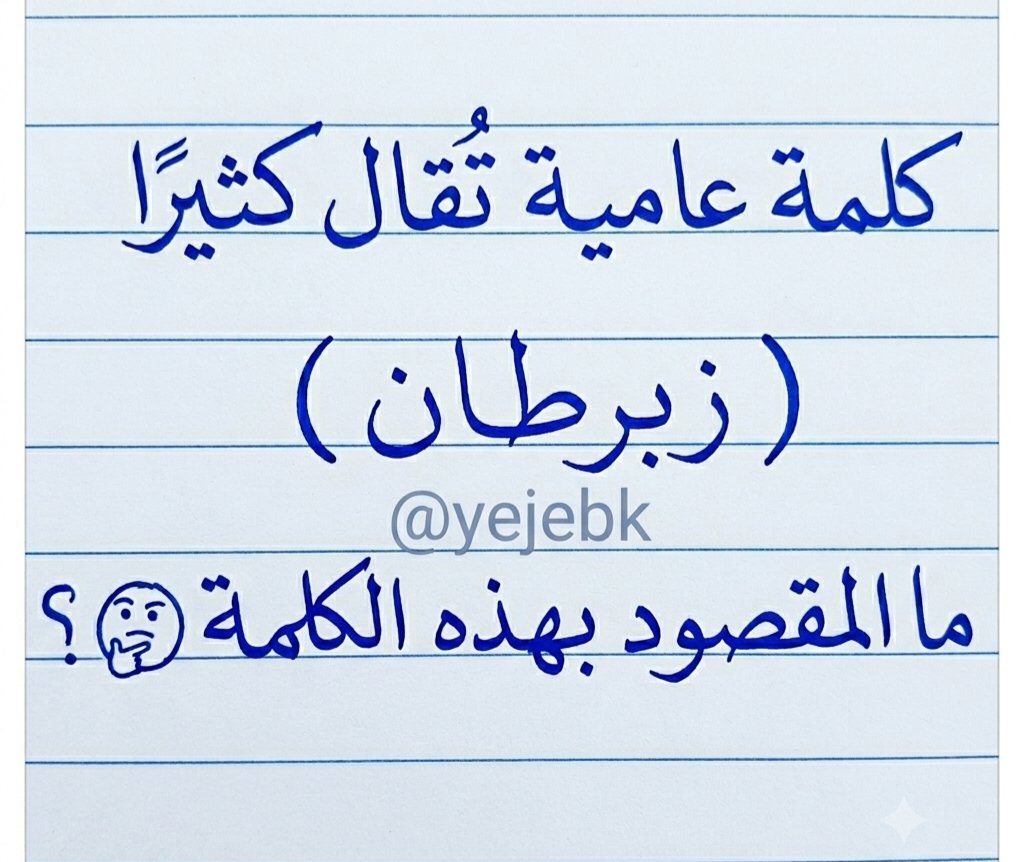 كلمة عامية تُقال كثيرًا
( زبرطان )
@yejebk
ما المقصود بهذه الكلمة 🤔 ؟